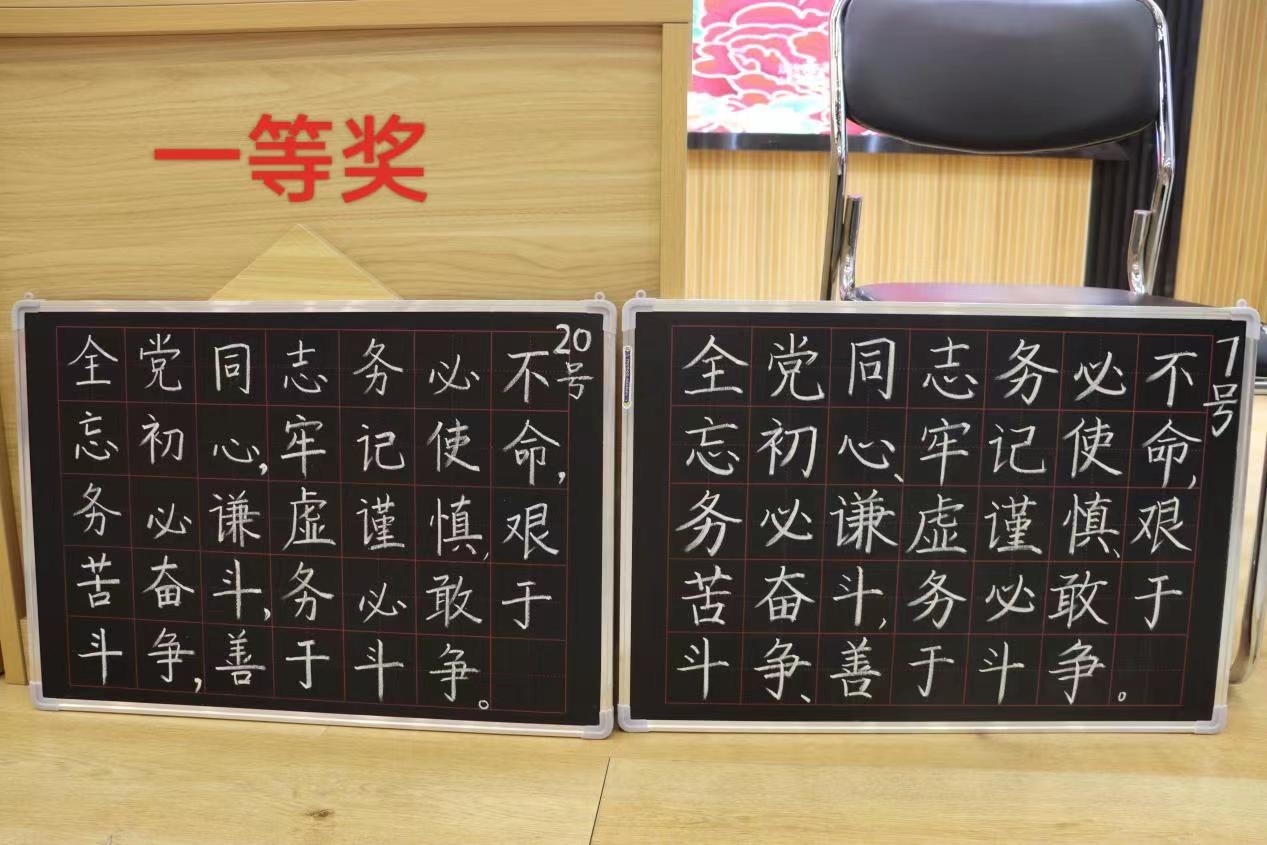 一等奖
全党同志务必不
忘初心,牢记使命,
务必谦虚谨慎,艰
苦奋斗,务必敢于
斗争,善于斗争。
20号
全党同志务必不
忘初心、牢记使命,
务必谦虚谨慎、艰
苦奋斗,务必敢于
斗争、善于斗争。
7号